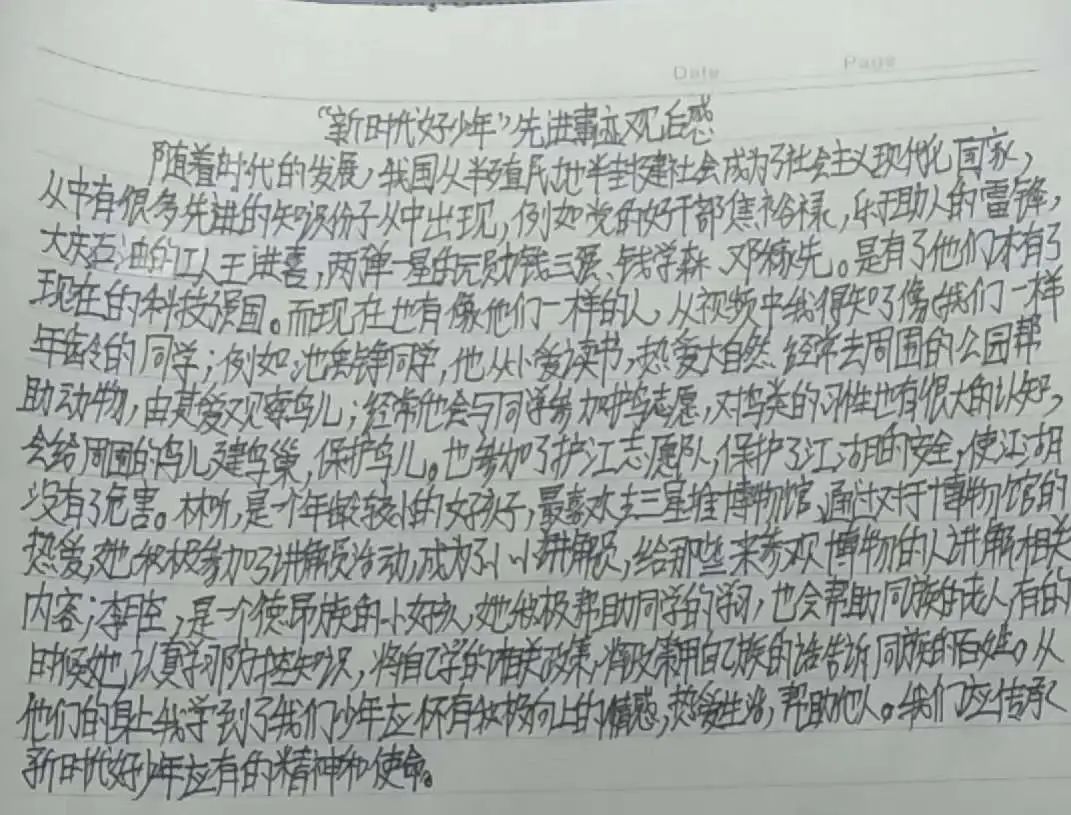 Date Page
“新时代好少年”先进事迹观后感
随着时代的发展，我国从半殖民地半封建社会成为了社会主义现代化国家，
从中有很多先进的知识份子从中出现，例如党的好干部焦裕禄，乐于助人的雷锋，
大庆石油的工人王进喜，两弹一星的元勋钱三强、钱学森、邓稼先。是有了他们才有了
现在的科技强国。而现在也有像他们一样的人，从视频中我得知了像我们一样
年龄的同学；例如：池禹铮同学，他从小爱读书，热爱大自然，经常去周围的公园帮
助动物，由其爱观察鸟儿；经常他会与同学参加护鸟志愿，对鸟类的习性也有很大的认知，
会给周围的鸟儿建鸟巢，保护鸟儿。也参加了护江志愿队，保护了江湖的安全，使江湖
没有了危害。林昕，是一个年龄较小的好孩子，最喜欢去三星堆博物馆，通过对于博物馆的
热爱，她积极参加了讲解员活动，成为了小小讲解员，给那些来参观博物的人讲解相关
内容；李月在，是一个德昂族的小女孩，她积极帮助同学的学习，也会帮助同族的老人，有的
时候她，认真学习防控知识，将自己学的相关政策，将政策用自己族的语告诉同族的百姓。从
他们的身上我学到了我们少年应怀有积极向上的情感，热爱生活，帮助他人。我们应传承
新时代好少年应有的精神和使命。